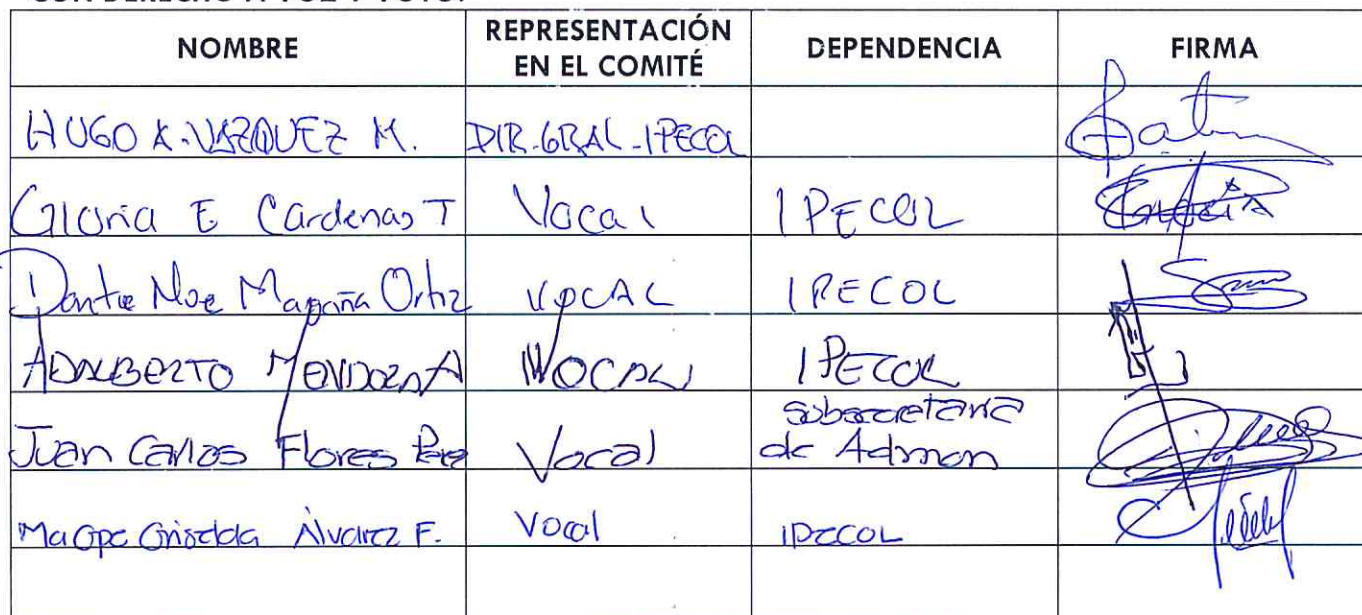 CON DERECHO A VOZ Y VOTO.
NOMBRE REPRESENTACIÓN EN EL COMITÉ DEPENDENCIA FIRMA
HUGO A. VAZQUEZ M. DIR. GRAL - IPECOL
Gloria E Cardenas T Vocal IPECOL
Dante Noe Magaña Ortiz VOCAL IPECOL
ADALBERTO MENDOZA A VOCAL IPECOL
Juan Carlos Flores Perez Vocal Subsecretaria de Admon
Ma Ope Griselda Álvarez F. Vocal IPECOL